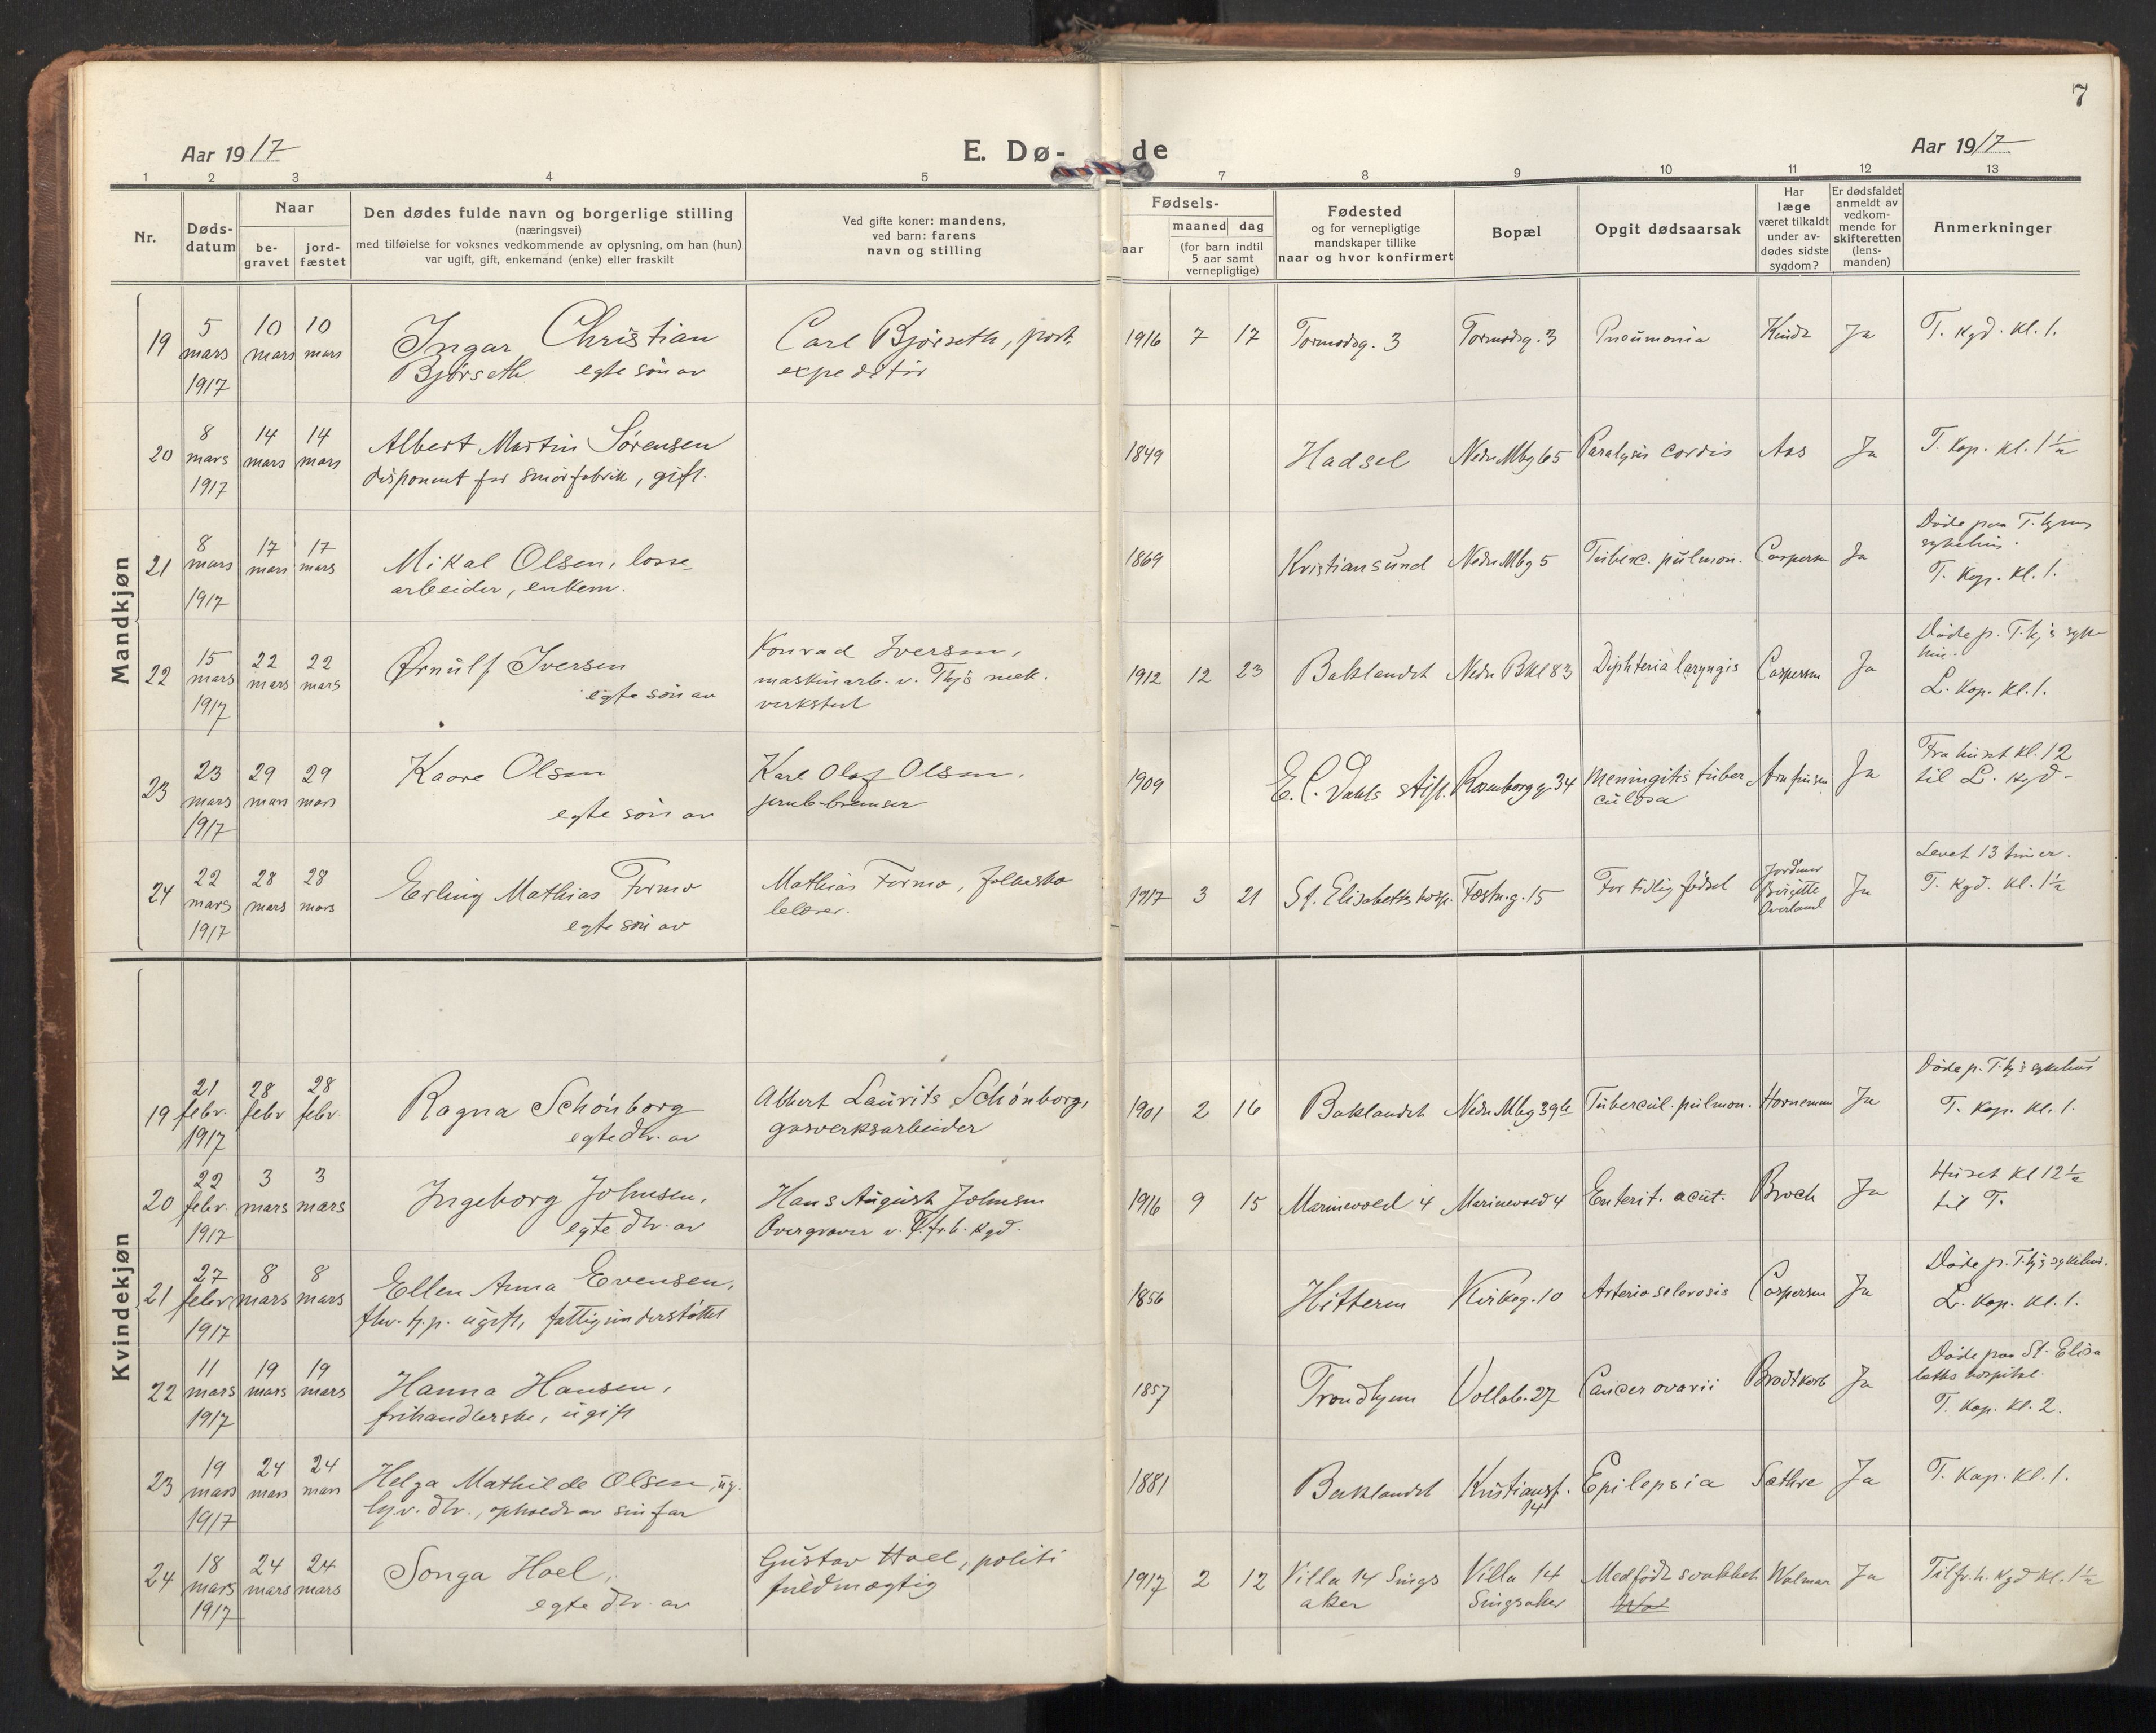 7
Aar 1917
E. Dø-
de
Aar 1917
1 2 3 4 5 7 8 9 10 11 12 13
Nr.
Døds-
datum
Naar
be-
gravet
jord-
fæstet
Den dødes fulde navn og borgerlige stilling
(næringsvei)
med tilføielse for voksnes vedkommende av oplysning, om han (hun)
var ugift, gift, enkemand (enke) eller fraskilt
Ved gifte koner: mandens,
ved barn: farens
navn og stilling
Fødsels-
aar
maaned dag
(for barn indtil
5 aar samt
vernepligtige)
Fødested
og for vernepligtige
mandskaper tillike
naar og hvor konfirmert
Bopæl
Opgit dødsaarsak
Har
læge
været tilkaldt
under av-
dødes sidste
sygdom?
Er dødsfaldet
anmeldt av
vedkom-
mende for
skifteretten
(lens-
manden)
Anmerkninger
Mandkjøn
19 5 mars 1917 10 mars 10 mars
Ingar Christian
Bjørseth egte søn av
Carl Bjørseth, post-
expeditør
1916 7 17 Tormodsg. 3 Tormodsg. 3 Pneumonia Ja T. kgd. kl. 1.
20 8 mars 1917 14 mars 14 mars
Albert Martin Sørensen
disponent for smørfabrik, gift.
1849 Hadsel Nedre Mbg 65 Paralysis cordis Aas Ja T. kap. kl. 1½
21 8 mars 1917 17 mars 17 mars
Mikal Olsen, losse-
arbeider, enkem.
1869 Kristiansund Nedre Mbg 5 Tuberc. pulmon. Caspersen Ja
Døde paa T.hjems
sykehus.
T. Kap. kl. 1.
22 15 mars 1917 22 mars 22 mars
Ørnulf Iversen
egte søn av
Konrad Iversen,
maskinarb. v. Thjs mek.
verksted
1912 12 23 Baklandet Nedre Bkl 83 Diphteria laryngis Caspersen Ja
Døde p. T.hj's syke-
hus.
L. kap. kl. 1.
23 23 mars 1917 29 mars 29 mars
Kaare Olsen
egte søn av
Karl Olaf Olsen,
jernb-bremser
1909 E. C. Dahls stift. Rosenborg g. 34 Meningitis tuber
culosa
Arnfinsen Ja
Fra huset kl. 12
til L. kgd-
24 22 mars 1917 28 mars 28 mars
Erling Mathias Formo
egte søn av
Mathias Formo, folkesko
lelærer.
1917 3 21 St. Elisabeths hosp. Festn.g. 15 For tidlig fødsel
Jordmor
Birgitte
Overland
Ja
Levet 13 timer.
T. kgd. kl. 1½
Kvindekjøn
19 21 febr. 1917 28 febr 28 febr.
Ragna Schönborg
egte dtr. av
Albert Laurits Schönborg,
gasverksarbeider
1901 2 16 Baklandet Nedre Mbg 39b Tubercul. pulmon. Hornemann Ja
Døde p. T.hj's sykehus
T. kap. kl. 1.
20 22 febr. 1917 3 mars 3 mars
Ingeborg Johnsen,
egte dtr. av
Hans August Johnsen
Overgraver v. T. frb. kgd.
1916 9 15 Marinevold 4 Marinevold 4 Enterit. acut. Broch Ja
Huset kl 12½
til T.
21 27 febr 1917 8 mars 8 mars
Ellen Anna Evensen,
fhv. tj.p. ugift, fattigunderstøttet
1856 Hitteren Kirkeg. 10 Arteriosclerosis Caspersen Ja
Døde p. T.hj's sykehus.
L. kap. kl. 1.
22 11 mars 1917 19 mars 19 mars
Hanna Hansen,
frihandlerske, ugift
1857 Trondhjem Vollab. 27 Cancer ovarii Brodtkorb Ja
Døde paa St. Elisa
beths hospital.
T. kap. kl. 2.
23 19 mars 1917 24 mars 24 mars
Helga Mathilde Olsen, ug.
hjv. dtr., opholdt av sin far
1881 Baklandet Kristiansf.
14
Epilepsia Sæthre Ja T. kap. kl. 1.
24 18 mars 1917 24 mars 24 mars
Songa Hoel,
egte dtr. av
Gustav Hoel, politi
fuldmægtig
1917 2 12 Villa 14 Sings
aker
Villa 14
Singsaker
Medfødt svakhet Walmar Ja Tilfr.h. kgd kl. 1½